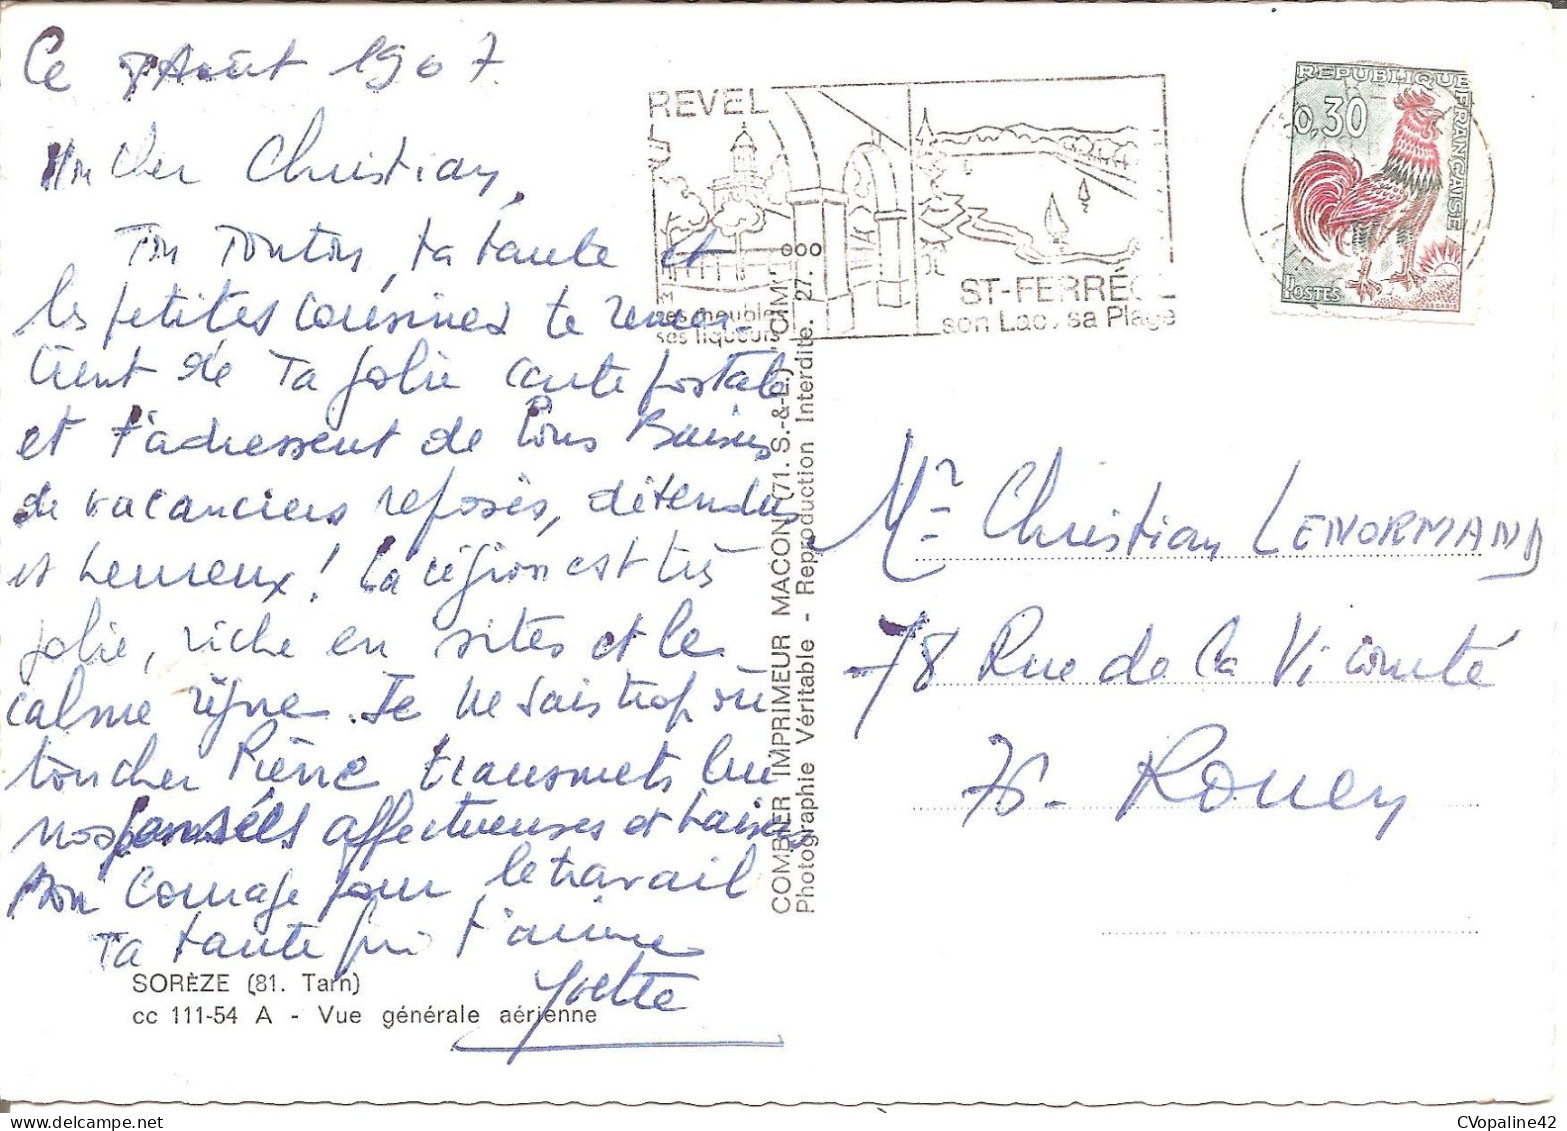 Ce 7 Août 1967
Mon cher Christian,
Ton Tonton, ta tante et
les petites cousines te remer-
cient de ta jolie carte postale
et t'adressent de bons Baisers
de vacanciers reposés, détendus
et heureux ! La région est très
jolie, riche en sites et le
calme règne. Je ne sais trop où
toucher Pierre transmets lui
nos pensées affectueuses et baisers
Bon courage pour le travail
Ta tante qui t'aime
Yvette
SORÈZE (81. Tarn)
cc 111-54 A - Vue générale aérienne
COMBIER IMPRIMEUR MACON (71. S.-&-L.) "CIM"
Photographie Véritable - Reproduction Interdite. 27.000
REVEL
ses meubles
ses liqueurs
ST-FERRÉOL
son Lac, sa Plage
REPUBLIQUE FRANÇAISE
0,30
POSTES
Mr Christian LENORMAND
78 Rue de la Vicomté
76 - Rouen
CVopaline42